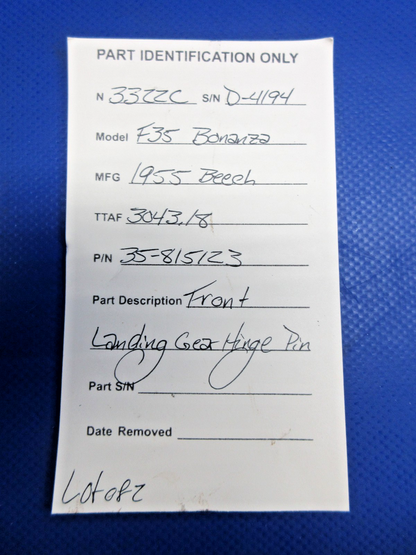 PART IDENTIFICATION ONLY
N 3322C S/N D-4194
Model F35 Bonanza
MFG 1955 Beech
TTAF 3043.18
P/N 35-815123
Part Description Front
Landing Gear Hinge Pin
Part S/N
Date Removed
Lot of 2